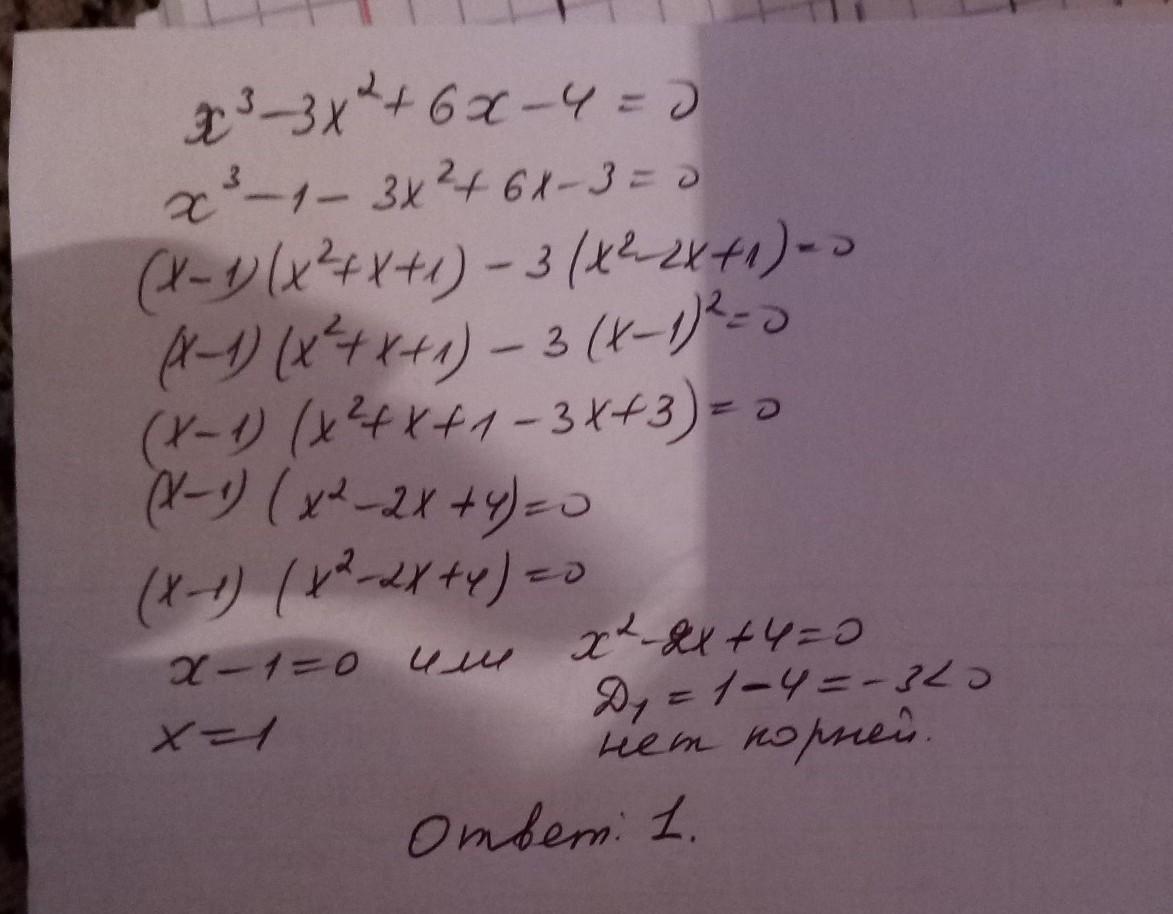 x³ - 3x² + 6x - 4 = 0
x³ - 1 - 3x² + 6x - 3 = 0
(x-1)(x²+x+1) - 3(x²-2x+1) = 0
(x-1)(x²+x+1) - 3(x-1)² = 0
(x-1)(x²+x+1-3x+3) = 0
(x-1)(x²-2x+4) = 0
(x-1)(x²-2x+4) = 0
x-1=0 или x²-2x+4=0
D₁ = 1-4 = -3 < 0
x=1 нет корней.
Ответ: 1.